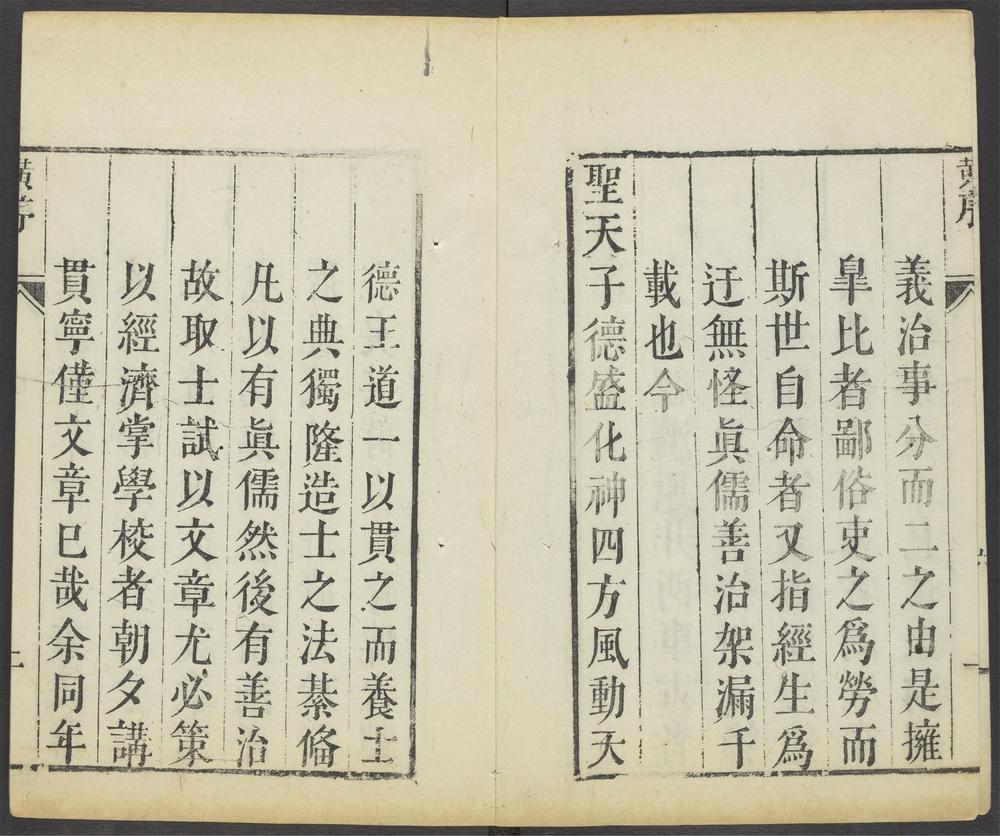 黄序
義治事分而二之由是擁
臯比者鄙俗吏之爲勞而
斯世自命者又指經生爲
迂無怪眞儒善治架漏千
載也今
聖天子德盛化神四方風動天
德王道一以貫之而養士
之典獨隆造士之法綦偹
凡以有眞儒然後有善治
故取士試以文章尤必策
以經濟掌學校者朝夕講
貫寧僅文章已哉余同年
黄序
二